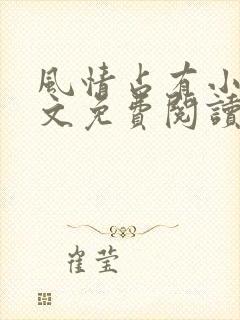 風情占有小
文免費閱讀
崔莹